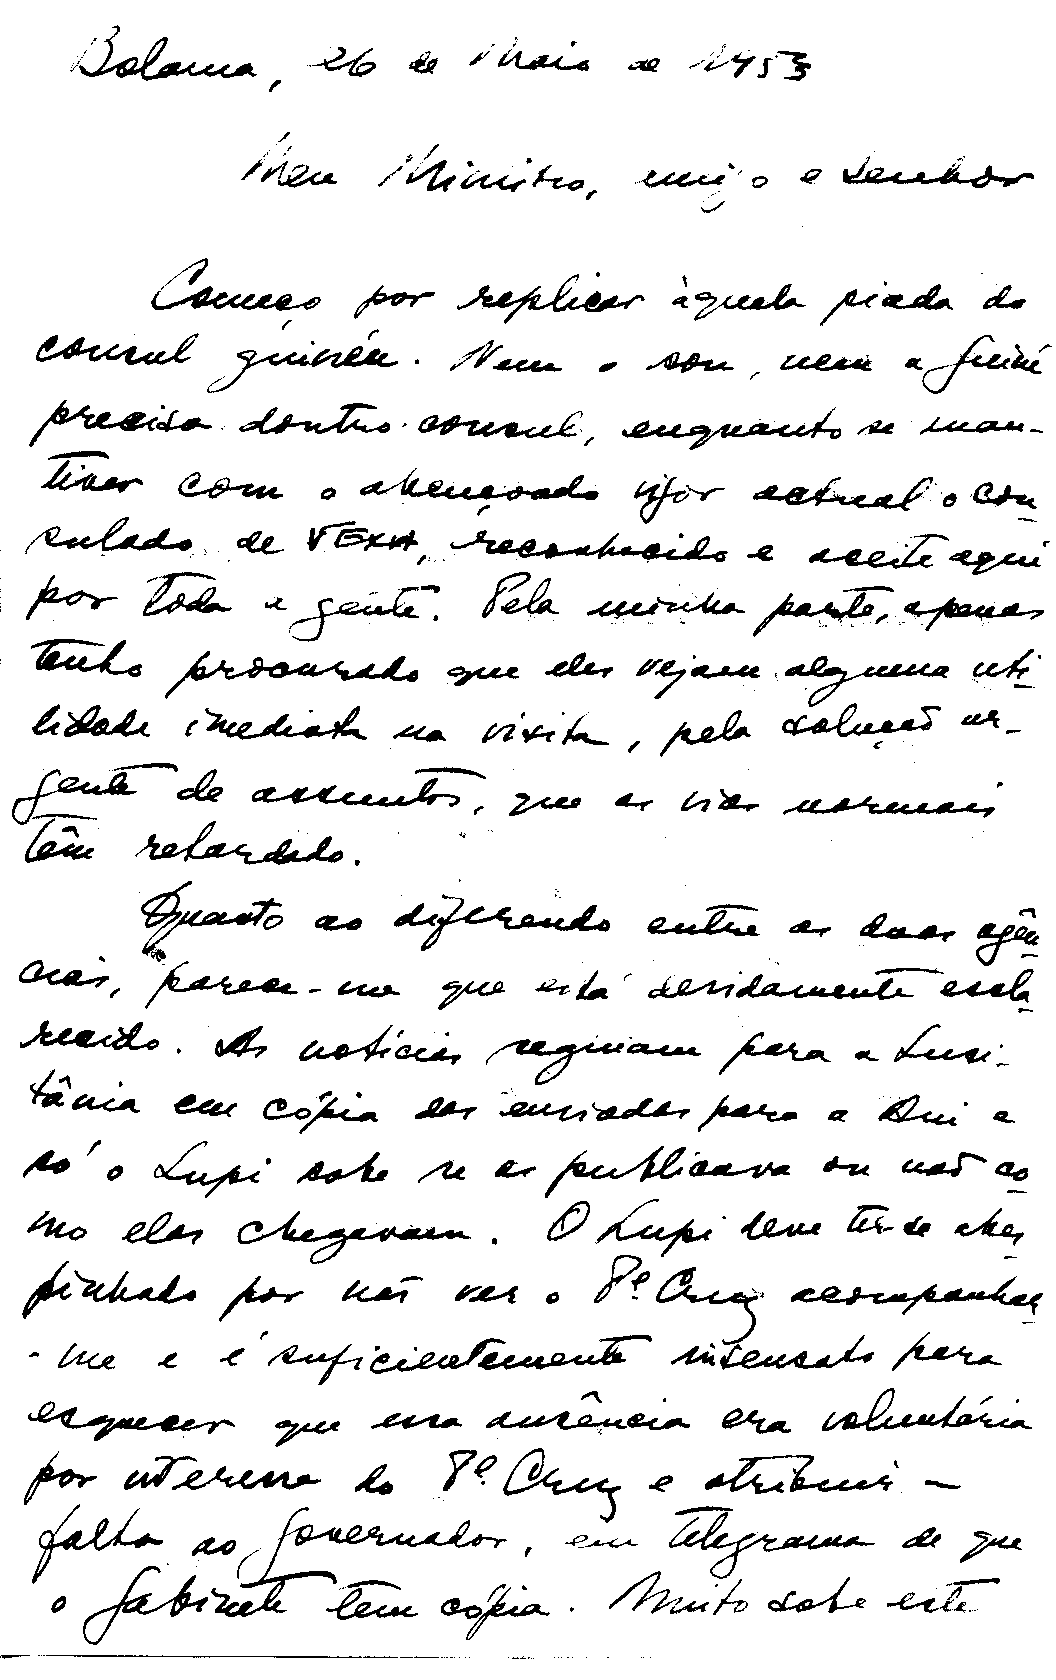 Bolama, 26 de Maio de 1953
Meu Ministro, amigo e senhor
Começo por replicar àquela piada do
consul guinéu. Nem o sou, nem a Guiné
precisa doutro consul, enquanto se man-
tiver com o abençoado vigor actual o con-
sulado de VEXA, reconhecido e aceite aqui
por toda a gente. Pela minha parte, apenas
tenho procurado que eles vejam alguma uti-
lidade imediata na visita, pela solução ur-
gente de assuntos, que as vias normais
têm retardado.
Quanto ao diferendo entre as duas agên-
cias, parece-me que está devidamente escla-
recido. As notícias seguiam para a Lusi-
tânia em cópia das enviadas para a Ani e
só o Lupi sabe se as publicava ou não co-
mo elas chegavam. O Lupi deve ter-se abes
pinhado por não ver o Pe. Cruz acompanhar
-me e é suficientemente insensato para
esquecer que essa ausência era voluntária
por interesse do Pe. Cruz e atribuir a
falta ao Governador, em telegrama de que
o Gabinete tem cópia. Muito sabe este